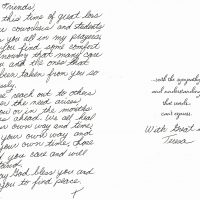 Friends,
this time of great loss
coworkers and students
you all in my prayers.
you find some comfort
memory that many
and the ones that
been taken from you so
reach out to others
the need arises
or in the months
ahead. We all heal
own way and time,
your own way and
your own time, those
you care and will
God bless you and
you to find peace.
...with the sympathy
and understanding
that words
can't express.
With Great
Teresa